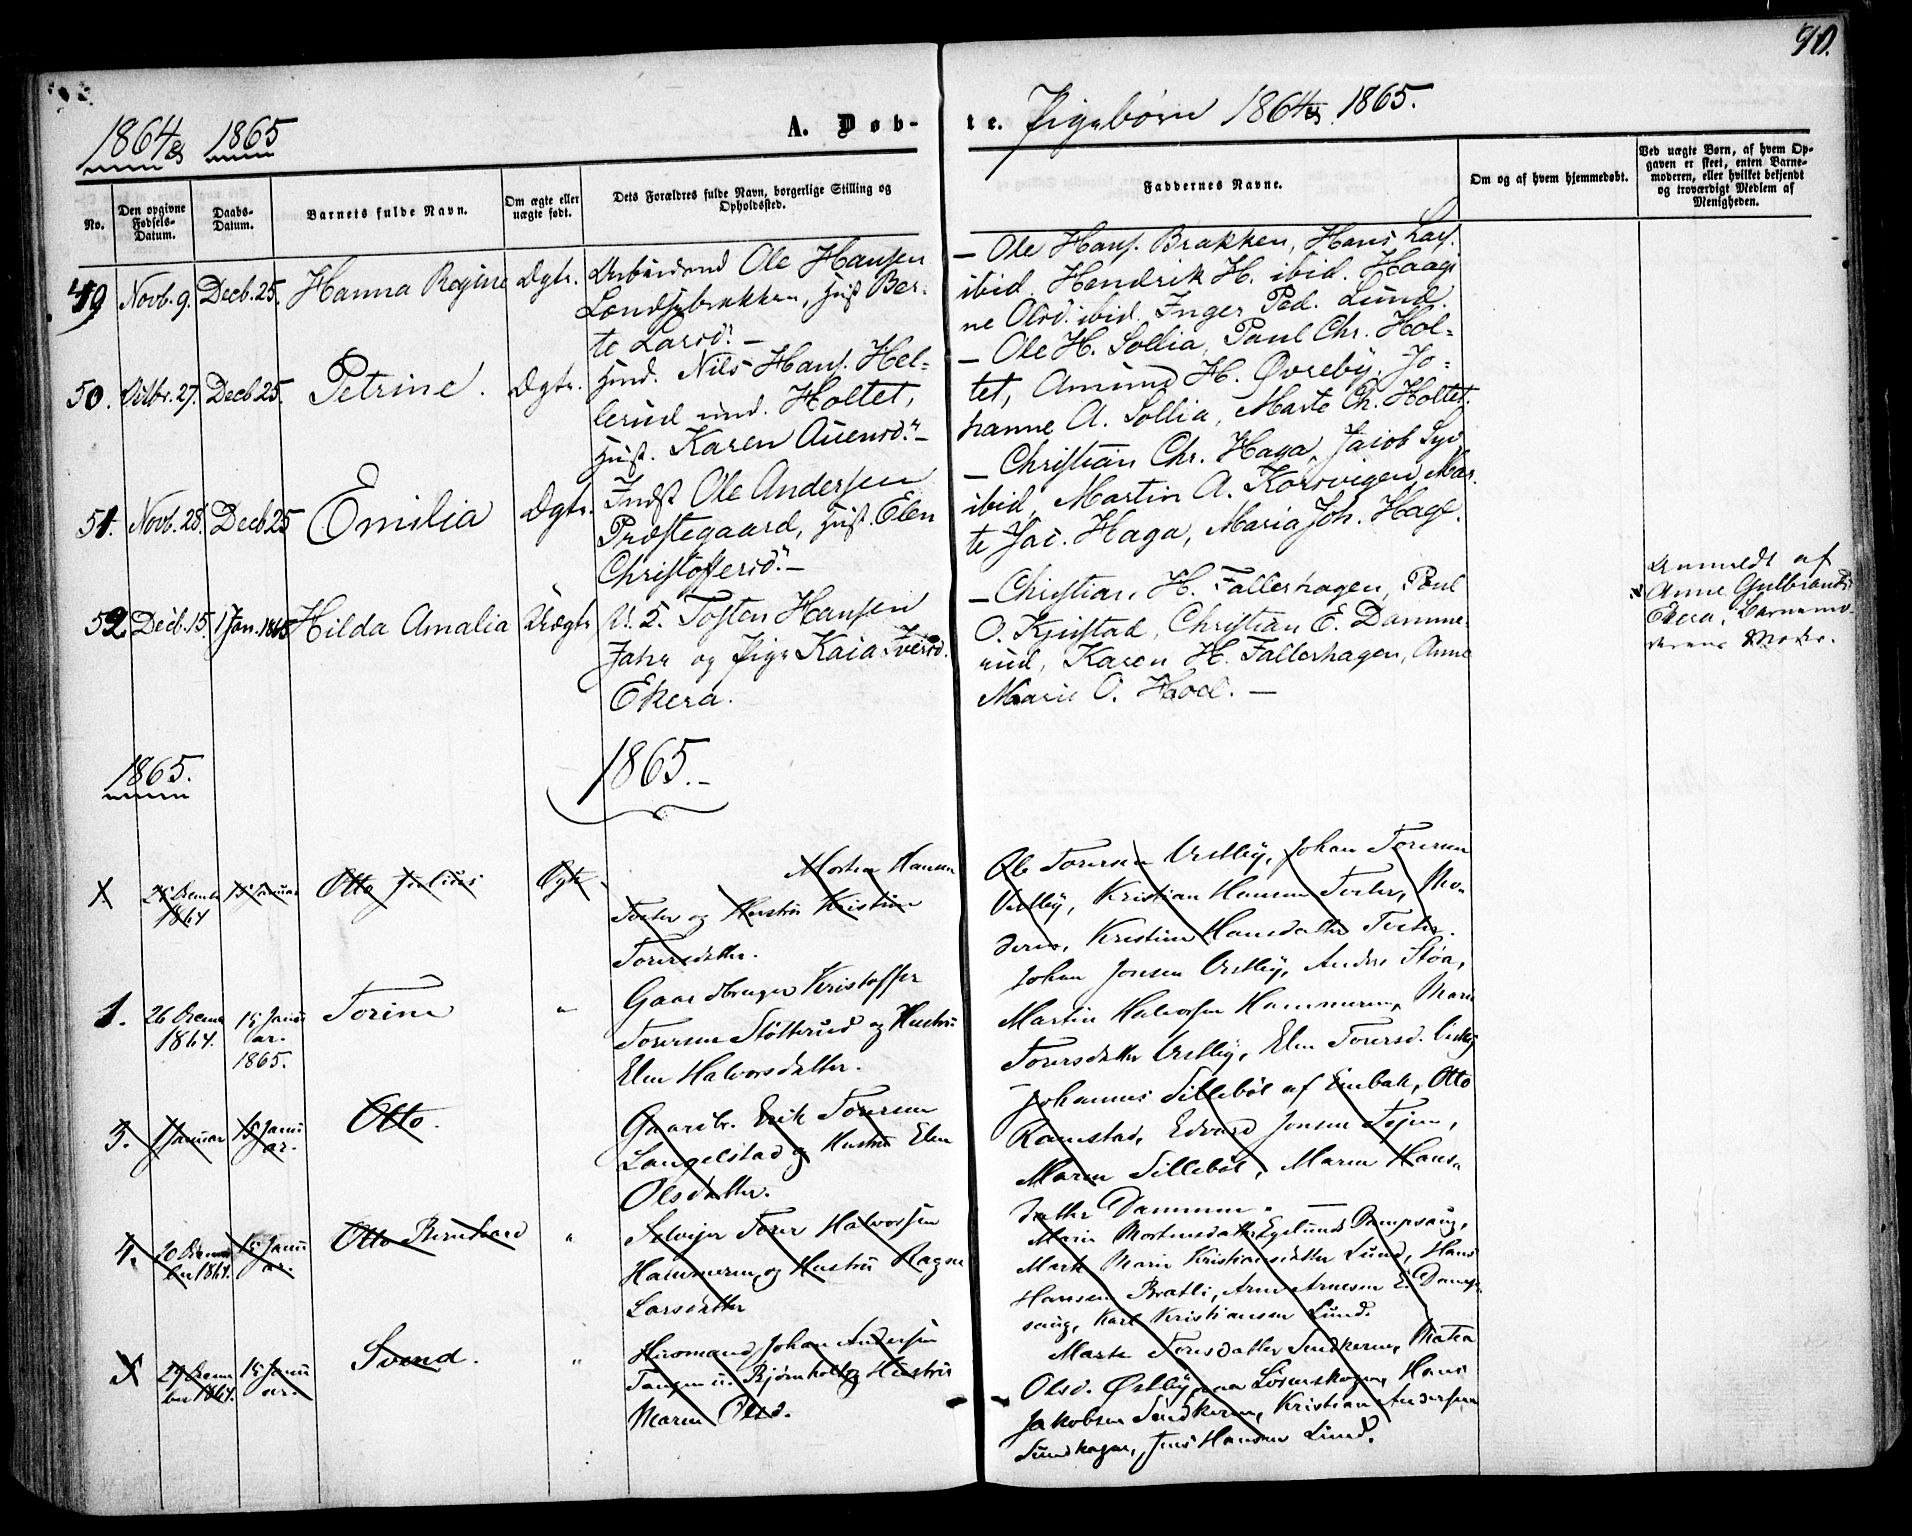 90.
1864 & 1865
A. Døb-
te. Pigebørn 1864 & 1865.
No.
Den opgivne Fødsels-Datum.
Daabs-Datum.
Barnets fulde Navn.
Om ægte eller uægte født.
Dets Forældres fulde Navn, borgerlige Stilling og Opholdssted.
Faddernes Navne.
Om og af hvem hjemmedøbt.
Ved uægte Børn, af hvem Opgaven er skeet, enten Barnemoderen, eller hvilket bekjendt og troværdigt Medlem af Menigheden.
49 Novb. 9. Decb. 25. Hanna Regine Dgtr.
Ole Hansen
Londsbrakken, Hust. Ber-
te Larsd. –
– Ole Hans. Brakken, Hans Lars.
ibid. Hendrik H. ibid. Haagi
ne Olsd. ibid. Inger Ped. Lund.
50. Octbr. 27. Decb 25. Petrine. Dgtr.
Nils Hans. Hel-
lerud und. Holtet,
Hust. Karen Auensd. –
– Ole H. Sollia, Paul Chr. Hol-
tet, Amund H. Øvreby, Jo-
hanne A. Sollia, Marte Ch. Holtet.
51. Novb. 28. Decb 25 Emilia Dgtr.
Indst Ole Andersen
Præstegaard, Hust. Elen
Christoffersd. –
– Christian Chr. Haga, Jacob Syv.
ibid, Martin A. Korsvigen, Mar-
te Jac. Haga, Maria Joh. Hage.
52. Decb. 15. 1 Jan. 1865 Hilda Amalia Uægte
U. S. Tosten Hansen
Jahr og Pige Kaia Iversd.
Ekera.
– Christian H. Fallerhagen, Paul
O. Kjustad, Christian E. Damme-
rud, Karen H. Fallerhagen, Anne
Marie O. Hoel. –
Anmeldt af
Anne Gulbrandsd
Ekera, Barnemo-
derens Moder.
1865.
1865. –
Otto Julius Ægte
1864 15 Januar
Morten Hansen
Toeter og Hustru Kristine
Torersdatter.
Ole Torersen Vestby, Johan Torersen
Vestby, Kristian Hansen Toeter, Mo-
deren, Kristine Hansdatter Toeter.
1. 26 Decem 1864. 15 Janu ar. 1865. Torine "
Gaardbruger Kristoffer
Torersen Støtterud og Hustru
Elen Halvorsdatter.
Johan Jonsen Vestby, Anders Støa,
Martin Halvorsen Hammeren, Marie
Torersdatter Vestby, Elen Torersd. Vestby
3. 1 Januar 15 Janu ar. Otto.
Gaardbr. Erik Torersen
Langelstad og Hustru Elen
Olsdatter.
Johannes Sillebøl af Enebak, Otto
Ramstad, Edvard Jonsen Tojen,
Maren Sillebøl, Maren Hans-
datter Dammen. –
4. 20 Decem ber 1864. 15 Janu ar. Otto Bernhard "
Selveier Torer Halvorsen
Hammeren og Hustru Ragne
Larsdatter
Maria Mortensdatter Egelund
Marte Marie Kristiansdatter Lund, Hans
Hansen Bratli, Arne Arnesen
Karl Kristiansen Lund.
5 29 Decem ber 1864. 15 Janu ar. Svend. "
Huusmand Johan Andersen
Tangen u. Bjørnholt og Hustru
Maren Olsd.
Marte Torersdatter
Olsd. Østby, Hans
Jakobsen Kristian Andersen
Sundhagen, Jens Hansen Lund.